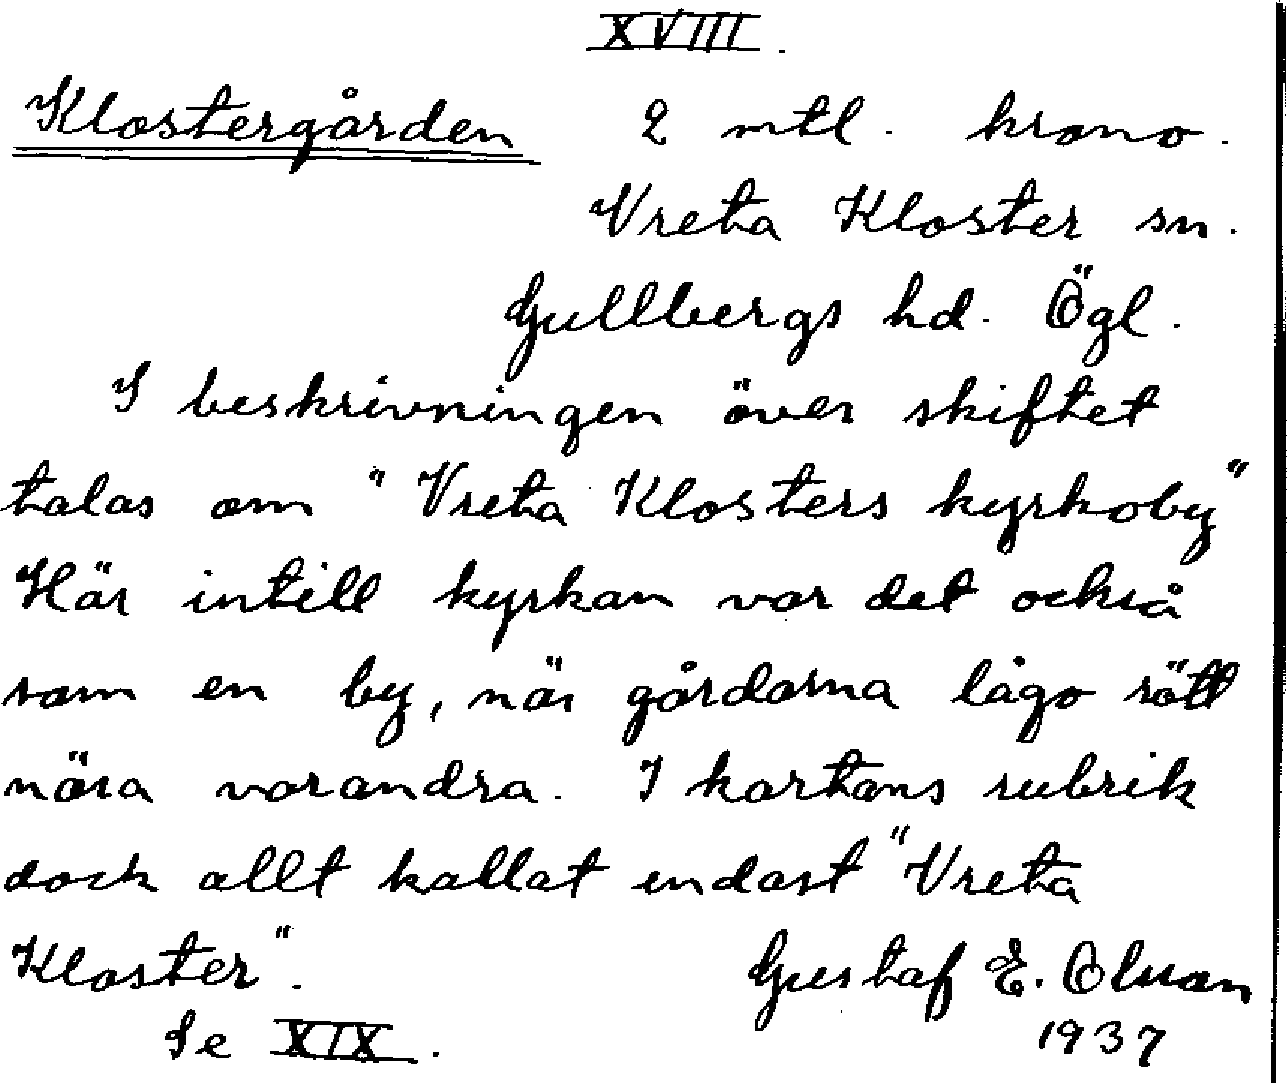 XVIII.
Klostergården 2 mtl. krono.
Vreta Kloster sn.
Gullbergs hd. Ögl.
I beskrivningen över skiftet
talas om "Vreta Klosters kyrkoby"
Här intill kyrkan var det också
som en by, när gårdarna lågo rätt
nära varandra. I kartans rubrik
dock allt kallat endast "Vreta
Kloster".
Gustaf E. Olsson
Se XIX.
1937